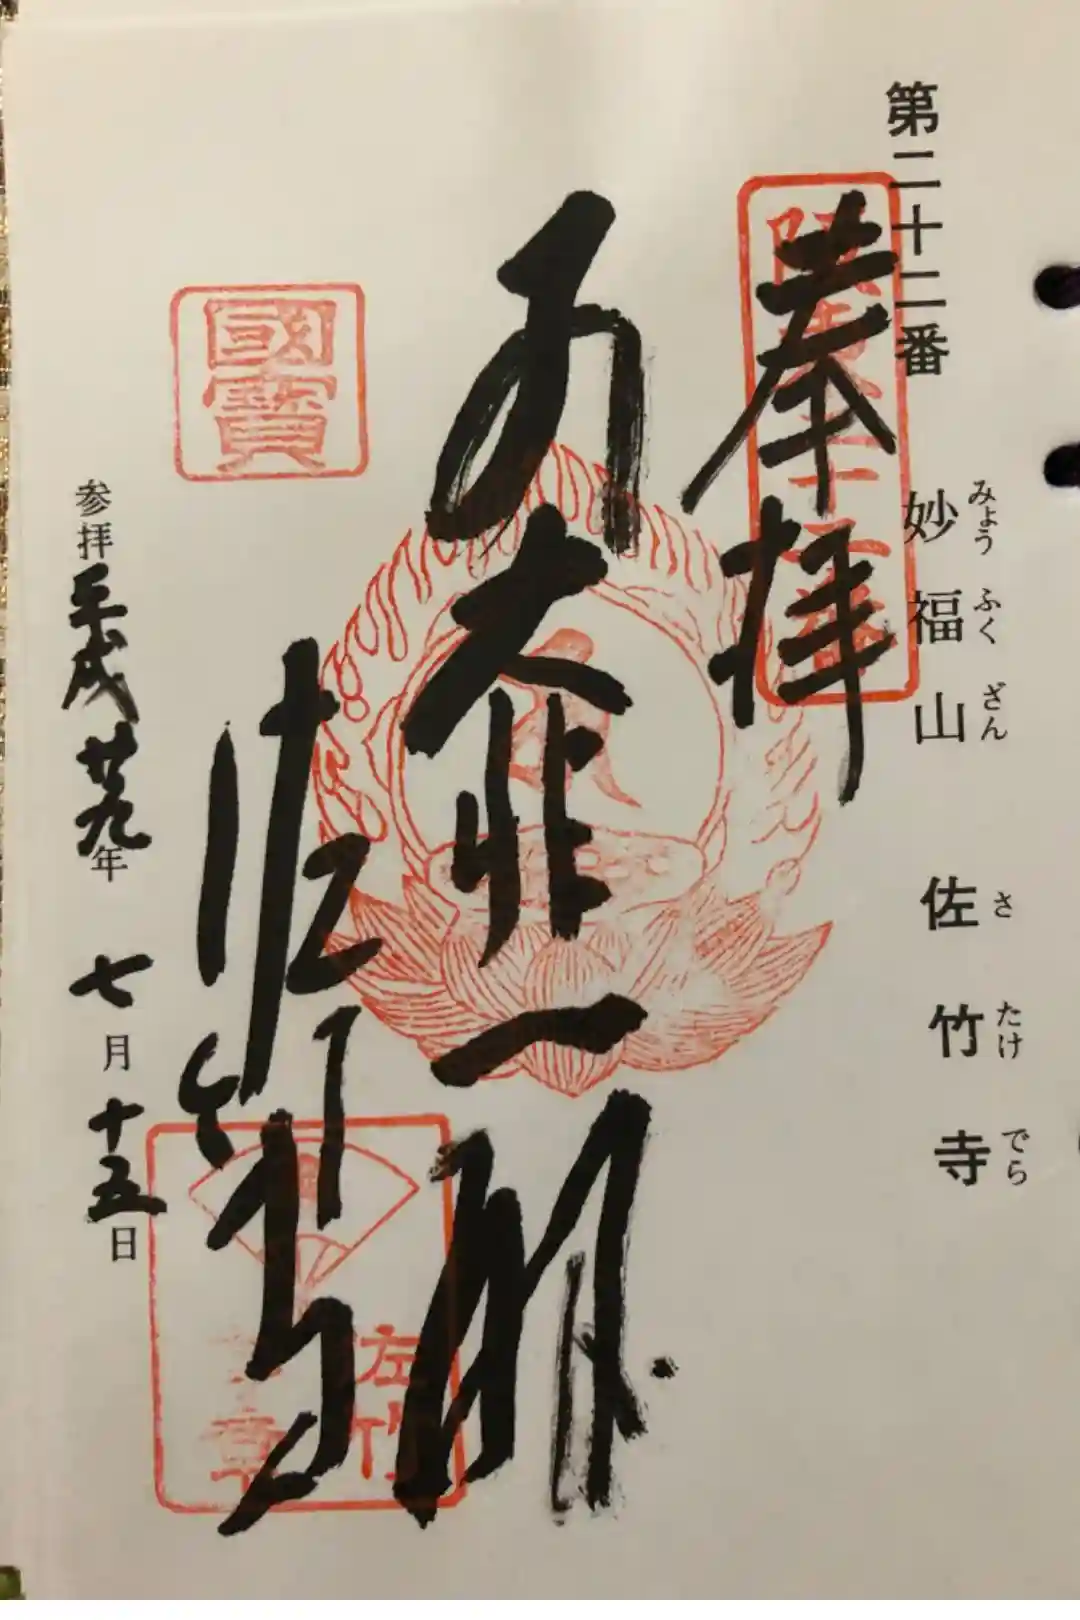 第二十二番
妙福山 佐竹寺
みょう ふく ざん さ たけ でら
奉拝
大悲
佐竹寺
國寶
参拝平成廿九年 七月十五日
佐竹